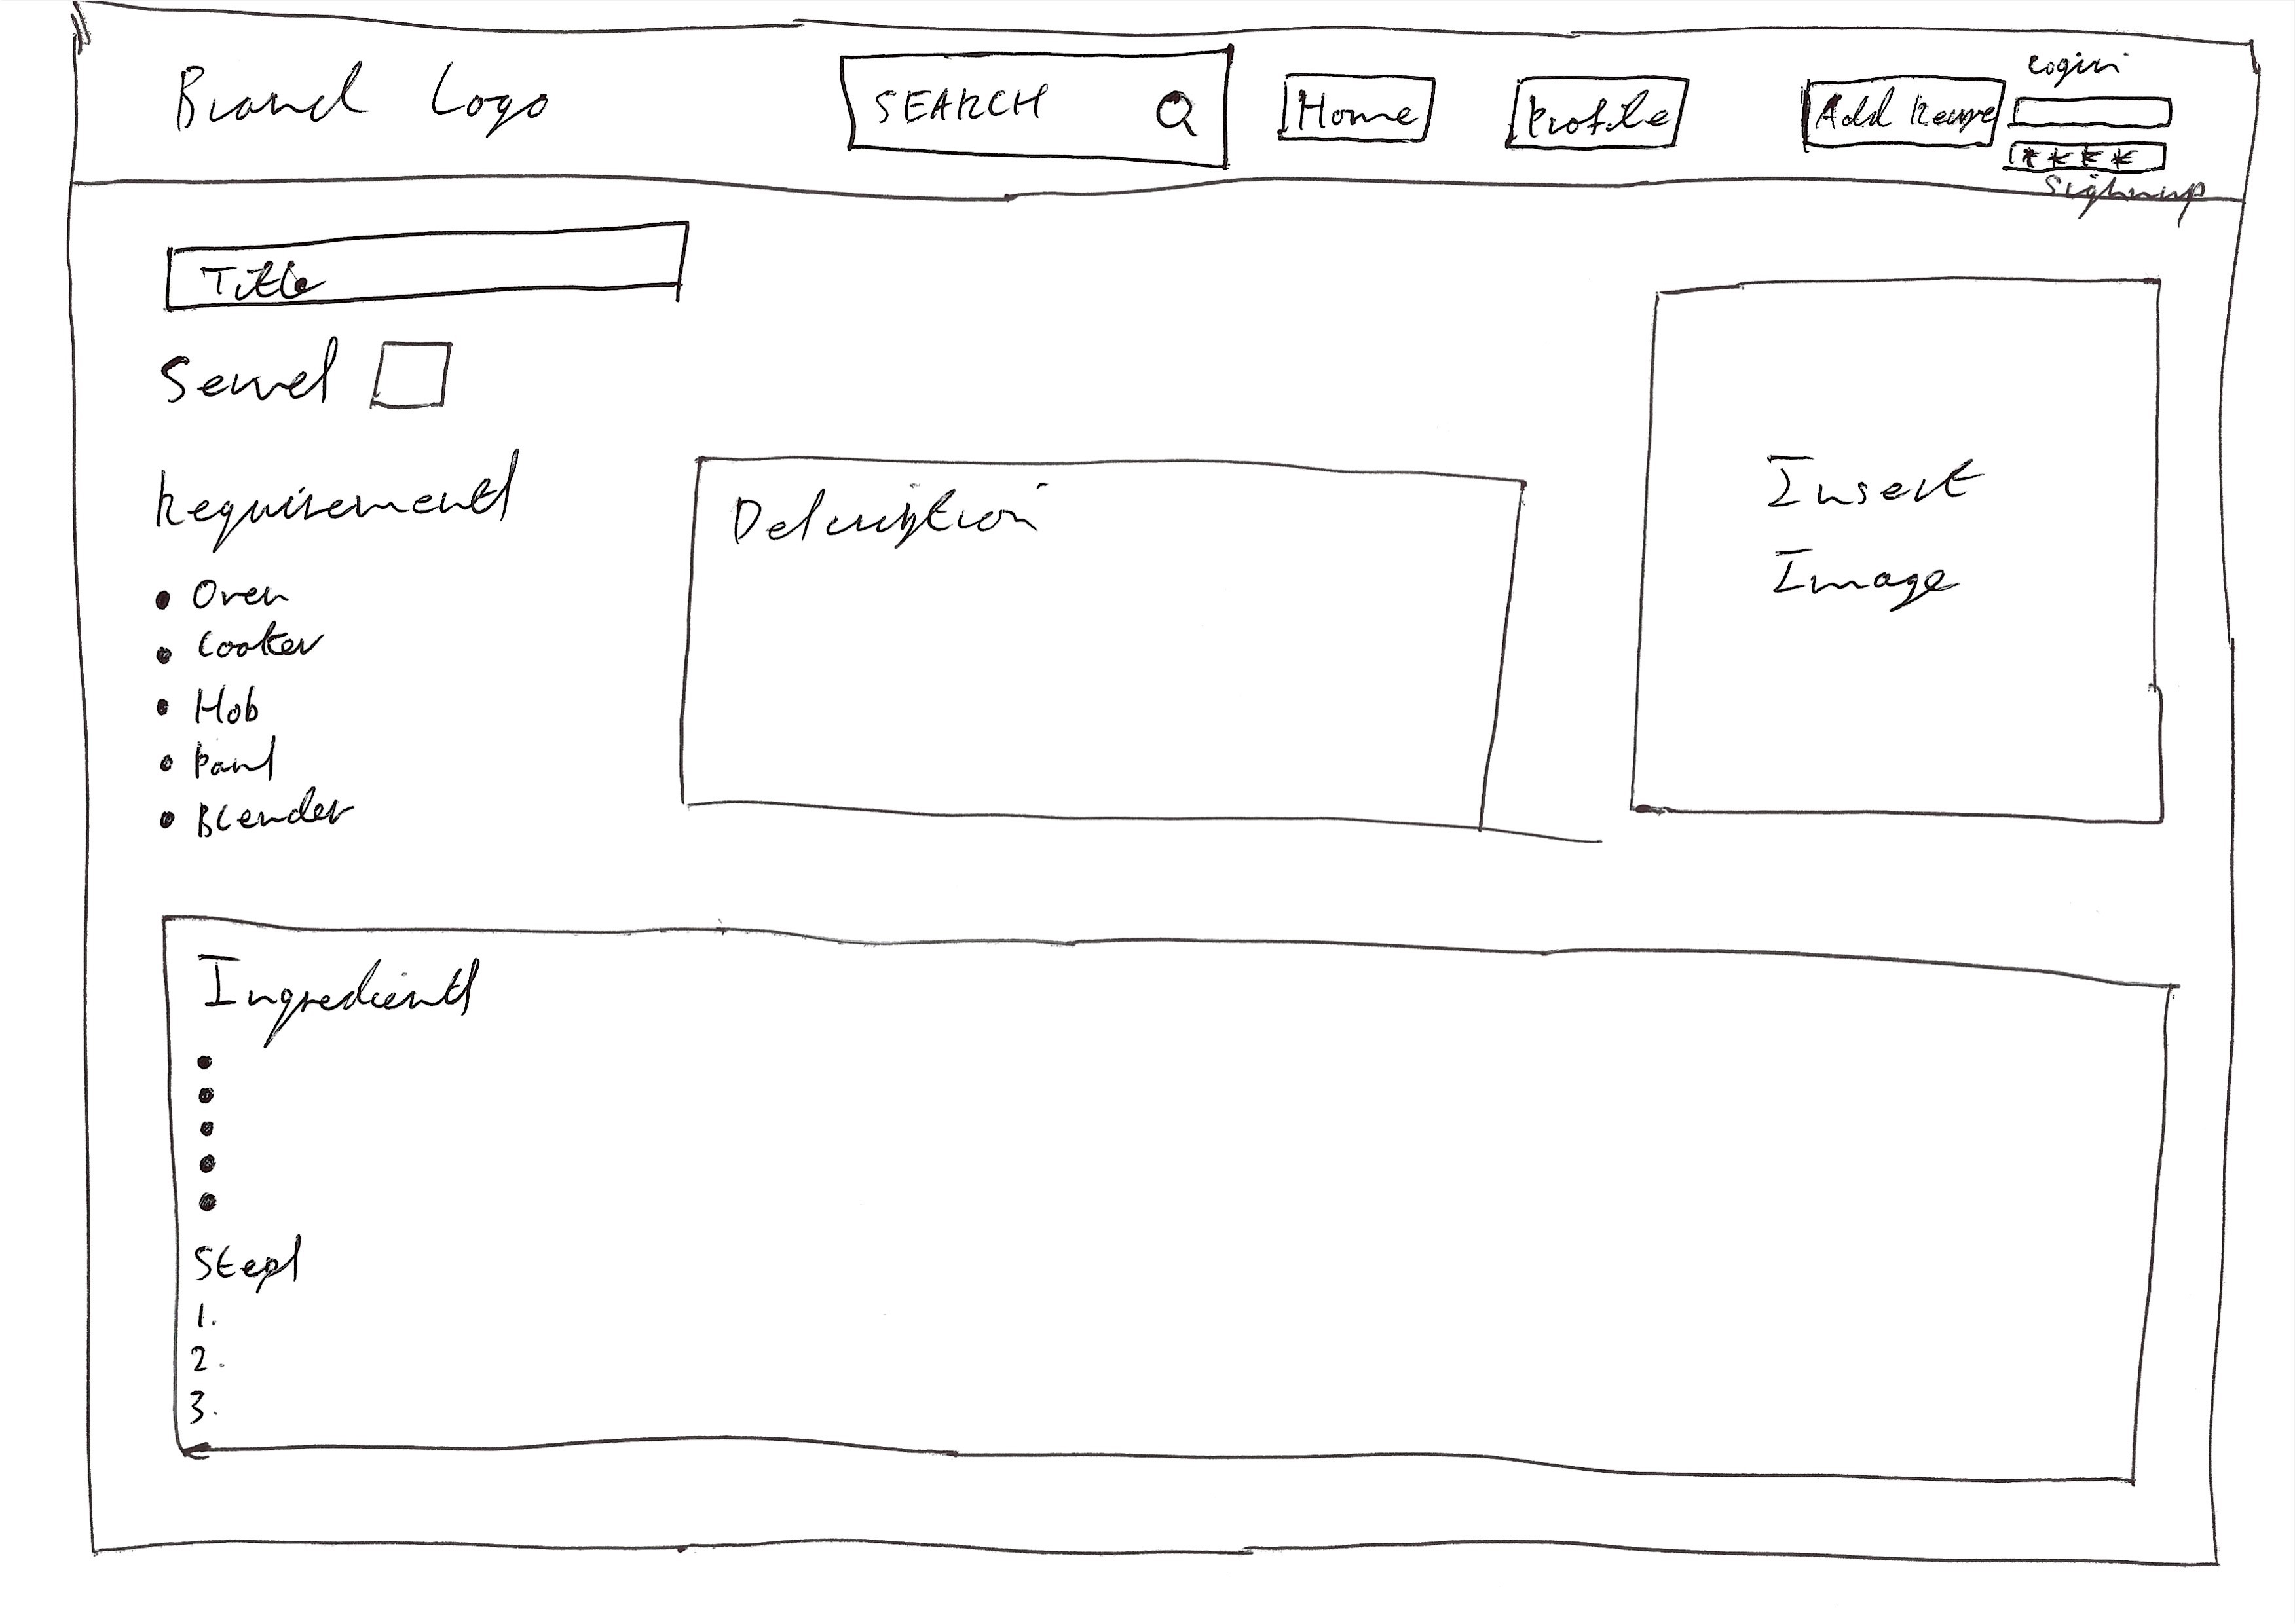 Brand Logo
SEARCH
Home
Profile
Add Recipe
login
****
Sighnup
Title
Serves
Requirements
• Oven
• Cooker
• Hob
• Pans
• Blender
Description
Insert
Image
Ingredients
•
•
•
•
•
Steps
1.
2.
3.